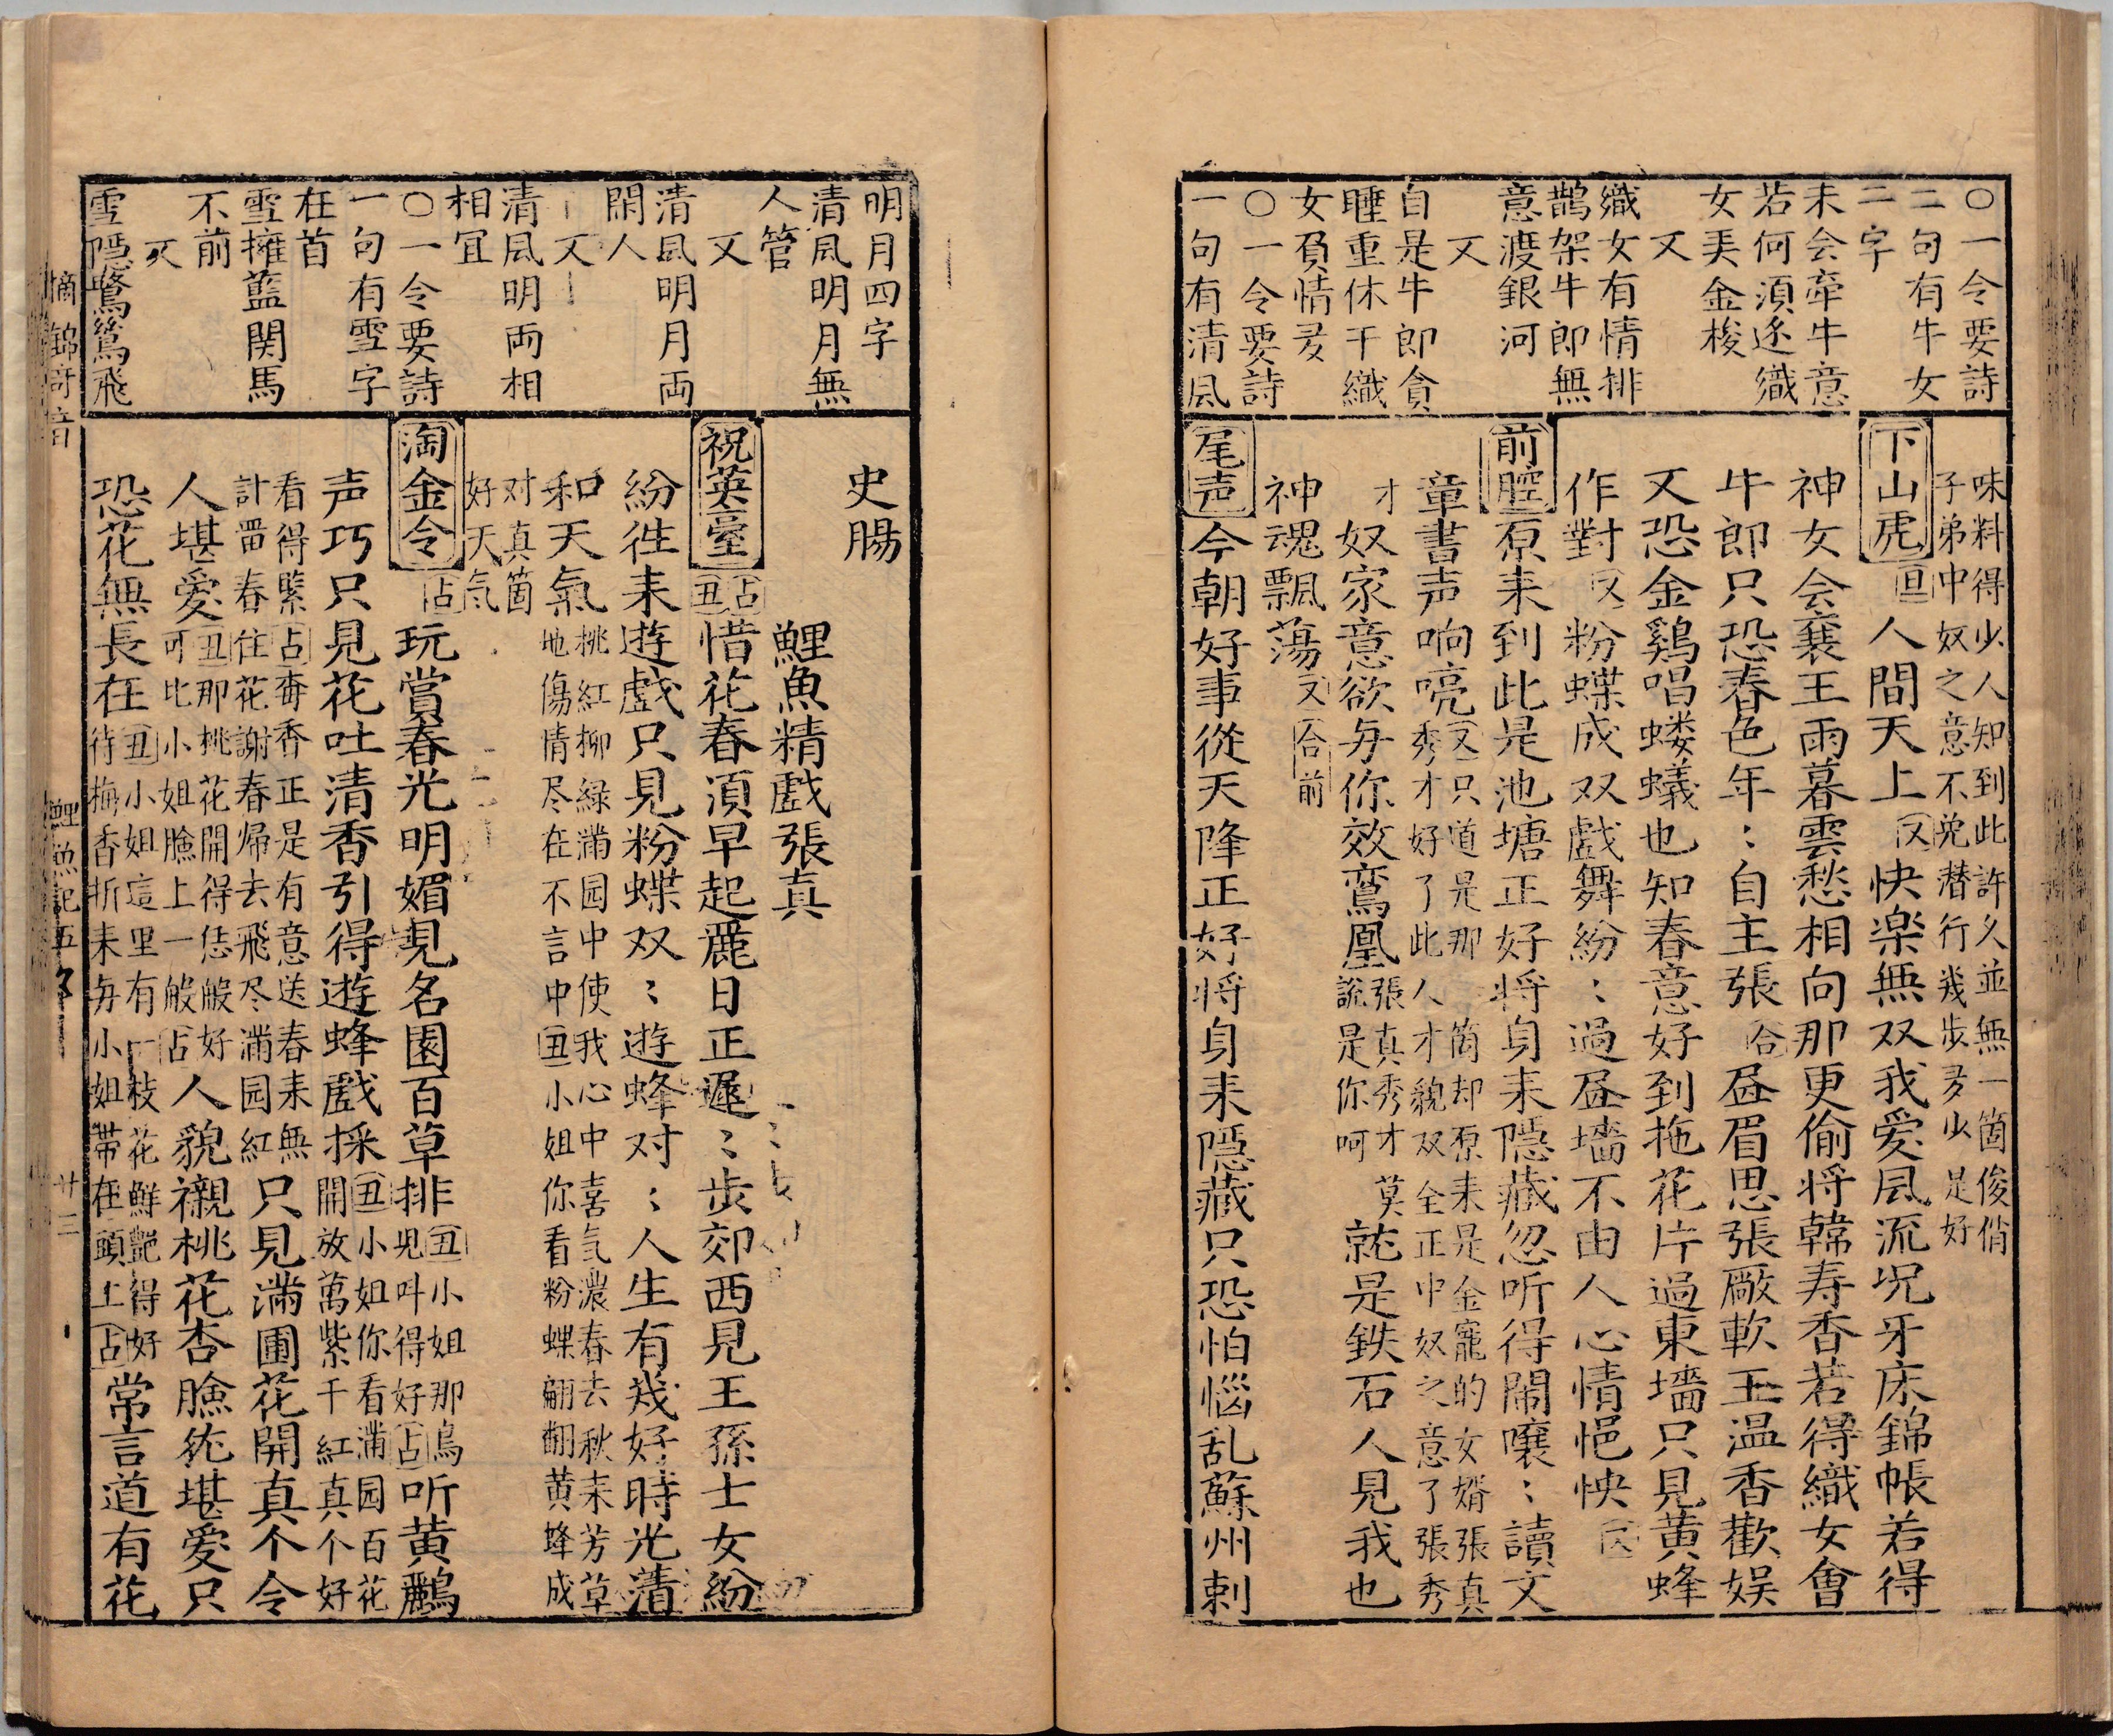 ○一令要詩
二句有牛女
二字
未会牽牛意
若何須迯織
女美金梭
又
織女有情排
鵲架牛郎無
意渡銀河
又
自是牛郎貪
睡重休干織
女負情多
○一令要詩
一句有清風
味料得少人知到此許久並無一箇俊俏
子弟中奴之意不免潜行幾步多少是好
下山虎 旦 人間天上 又 快楽無双我爱風流况牙床錦帳若得
神女会襄王雨暮雲愁相向那更偷将韓寿香若得織女會
牛郎只恐春色年〻自主張 合 昼眉思張厰軟玉温香歡娱
又恐金鷄唱蝼蟻也知春意好到拖花片過東墻只見黄蜂
作對 又 粉蝶成双戲舞紛〻過昼墻不由人心情悒怏 又
前腔 原耒到此是池塘正好将身耒隠藏忽听得閙嚷〻讀文
章書声响喨 又 只道是那箇却原耒是金寵的女婿張真
秀才好了此人才貌双全正中奴之意了張秀
才奴家意欲与你效鸞凰 張真秀才莫
說是你呵 就是鉄石人見我也
神魂飄蕩 又 合前
尾声 今朝好事從天降正好将身耒隠藏只恐怕惱乱蘇州刺
明月四字
清風明月無
人管
又
清風明月両
閑人
又
清風明両相
相冝
○一令要詩
一句有雪字
在首
雪擁藍関馬
不前
又
雪隠鷺鷥飛
史腸
鯉魚精戲張真
祝英臺 占 丑 惜花春須早起麗日正遲〻歩郊西見王孫士女紛
紛徃耒遊戲只見粉蝶双〻遊蜂对〻人生有幾好時光清
和天氣 桃紅柳緑滿园中使我心中喜氣濃春去秋耒芳草
地傷情尽在不言中 丑 小姐你看粉蝶翩翻黄蜂成
对真箇
好天氣
淘金令 占 玩賞春光明媚見名園百草排 丑 小姐那鳥
児叫得好 占 听黄鸝
声巧只見花吐清香引得遊蜂戲採 丑 小姐你看滿园百花
開放萬紫千紅真个好
看得緊 占 香香正是有意送春耒無
計畄春住花謝春帰去飛尽滿园紅 只見滿園花開真个令
人堪愛 丑 那桃花開得恁般好
可比小姐臉上一般 占 人貌襯桃花杏臉絶堪爱只
恐花無長在 丑 小姐這里有一枝花鮮艶得好
待搊香折耒与小姐帯在頭上 占 常言道有花
摘錦奇音
鯉魚記 五
廿三